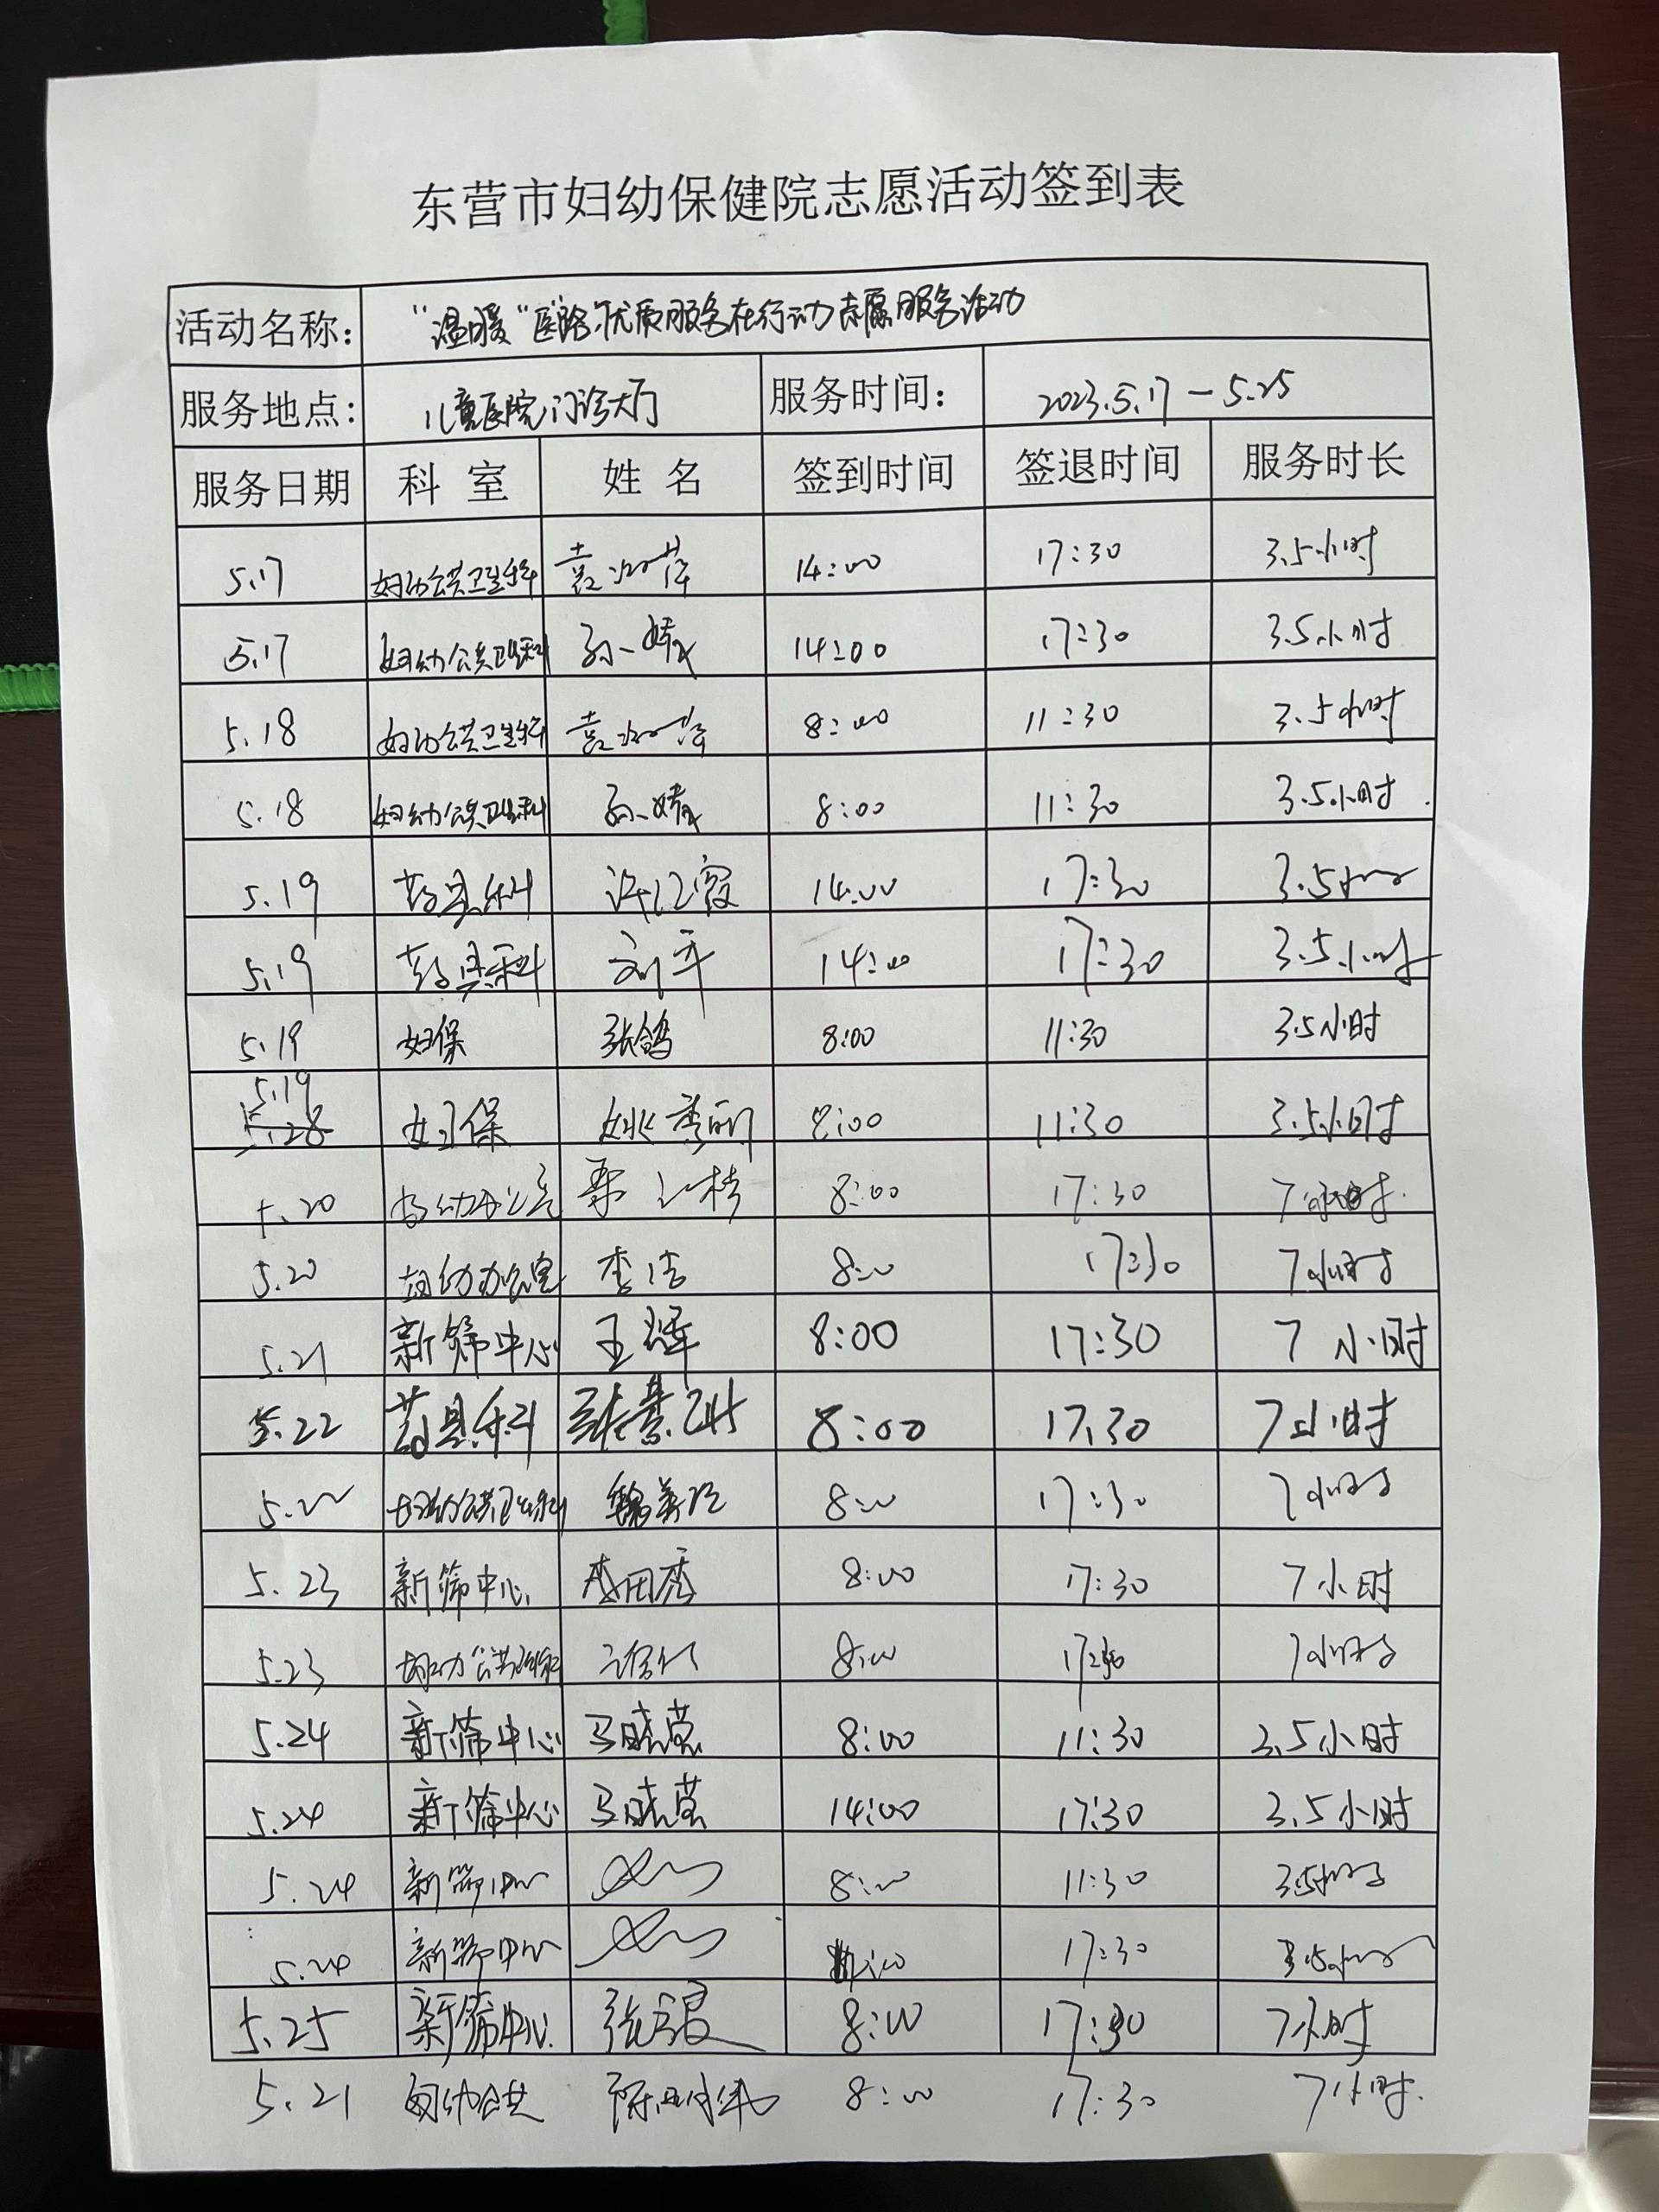 东营市妇幼保健院志愿活动签到表
活动名称: "温暖"医路,优质服务在行动志愿服务活动
服务地点: 儿童医院门诊大厅 服务时间: 2023.5.17—5.25
服务日期 科室 姓名 签到时间 签退时间 服务时长
5.17 妇幼公共卫生科 14:00 17:30 3.5小时
5.17 妇幼公共卫生科 孙婧 14:00 17:30 3.5小时
5.18 妇幼公共卫生科 8:00 11:30 3.5小时
5.18 妇幼公共卫生科 孙婧 8:00 11:30 3.5小时
5.19 药具科 许红霞 14:00 17:30 3.5小时
5.19 药具科 刘平 14:00 17:30 3.5小时
5.19 妇保 张鸽 8:00 11:30 3.5小时
5.19 妇保 姚秀丽 8:00 11:30 3.5小时
5.20 妇幼办公室 8:00 17:30 7小时.
5.20 妇幼办公室 李洁 8:00 17:30 7小时
5.21 新筛中心 王辉 8:00 17:30 7小时
5.22 药具科 8:00 17:30 7小时
5.22 妇幼公共卫生科 8:00 17:30 7小时
5.23 新筛中心 李田秀 8:00 17:30 7小时
5.23 妇幼公共卫生科 8:00 17:30 7小时
5.24 新筛中心 马晓莹 8:00 11:30 3.5小时
5.24 新筛中心 马晓莹 14:00 17:30 3.5小时
5.24 新筛中心 8:00 11:30 3.5小时
5.24 新筛中心 17:30 3.5小时
5.25 新筛中心 8:00 17:30 7小时
5.21 妇幼公共 8:00 17:30 7小时.